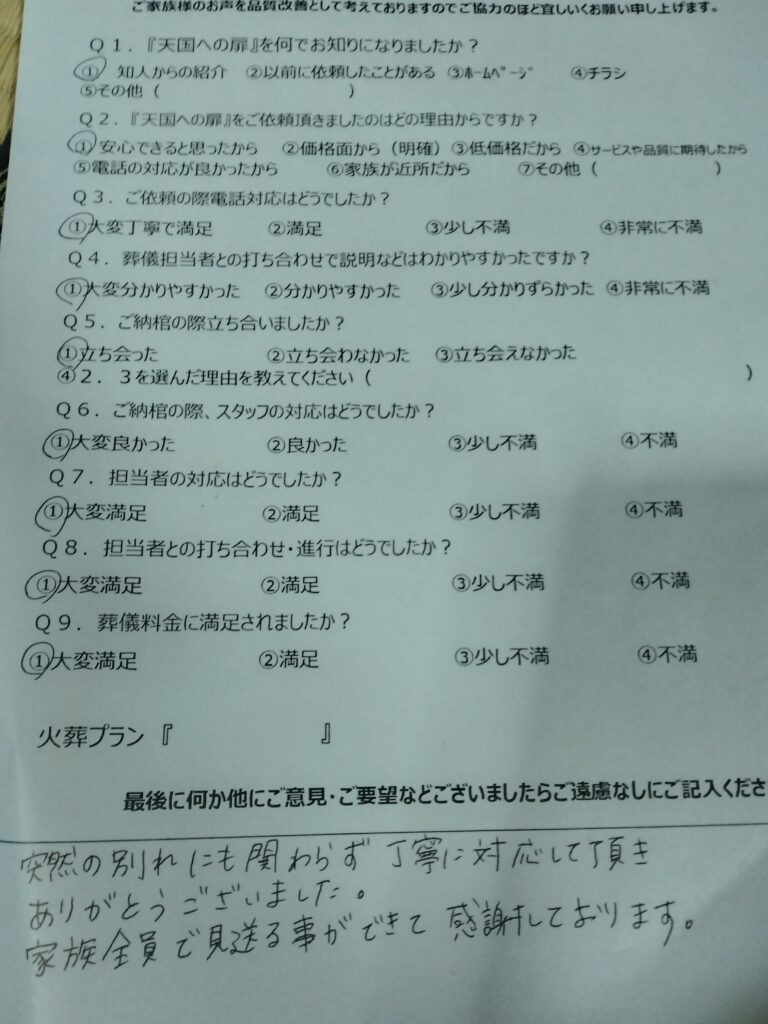 ご家族様のお声を品質改善として考えておりますのでご協力のほど宜しいくお願い申し上げます。
Q1．『天国への扉』を何でお知りになりましたか？
① 知人からの紹介 ②以前に依頼したことがある ③ﾎｰﾑﾍﾟｰｼﾞ ④チラシ
⑤その他（ ）
Q2．『天国への扉』をご依頼頂きましたのはどの理由からですか？
①安心できると思ったから ②価格面から（明確）③低価格だから ④サービスや品質に期待したから
⑤電話の対応が良かったから ⑥家族が近所だから ⑦その他（ ）
Q3．ご依頼の際電話対応はどうでしたか？
①大変丁寧で満足 ②満足 ③少し不満 ④非常に不満
Q4．葬儀担当者との打ち合わせで説明などはわかりやすかったですか？
①大変分かりやすかった ②分かりやすかった ③少し分かりずらかった ④非常に不満
Q5．ご納棺の際立ち合いましたか？
①立ち会った ②立ち会わなかった ③立ち会えなかった
④2．3を選んだ理由を教えてください（ ）
Q6．ご納棺の際、スタッフの対応はどうでしたか？
①大変良かった ②良かった ③少し不満 ④不満
Q7．担当者の対応はどうでしたか？
①大変満足 ②満足 ③少し不満 ④不満
Q8．担当者との打ち合わせ・進行はどうでしたか？
①大変満足 ②満足 ③少し不満 ④不満
Q9．葬儀料金に満足されましたか？
①大変満足 ②満足 ③少し不満 ④不満
火葬プラン『 』
最後に何か他にご意見・ご要望などございましたらご遠慮なしにご記入くださ
突然の別れにも関わらず 丁寧に対応して頂き
ありがとうございました。
家族全員で見送る事ができて 感謝しております。